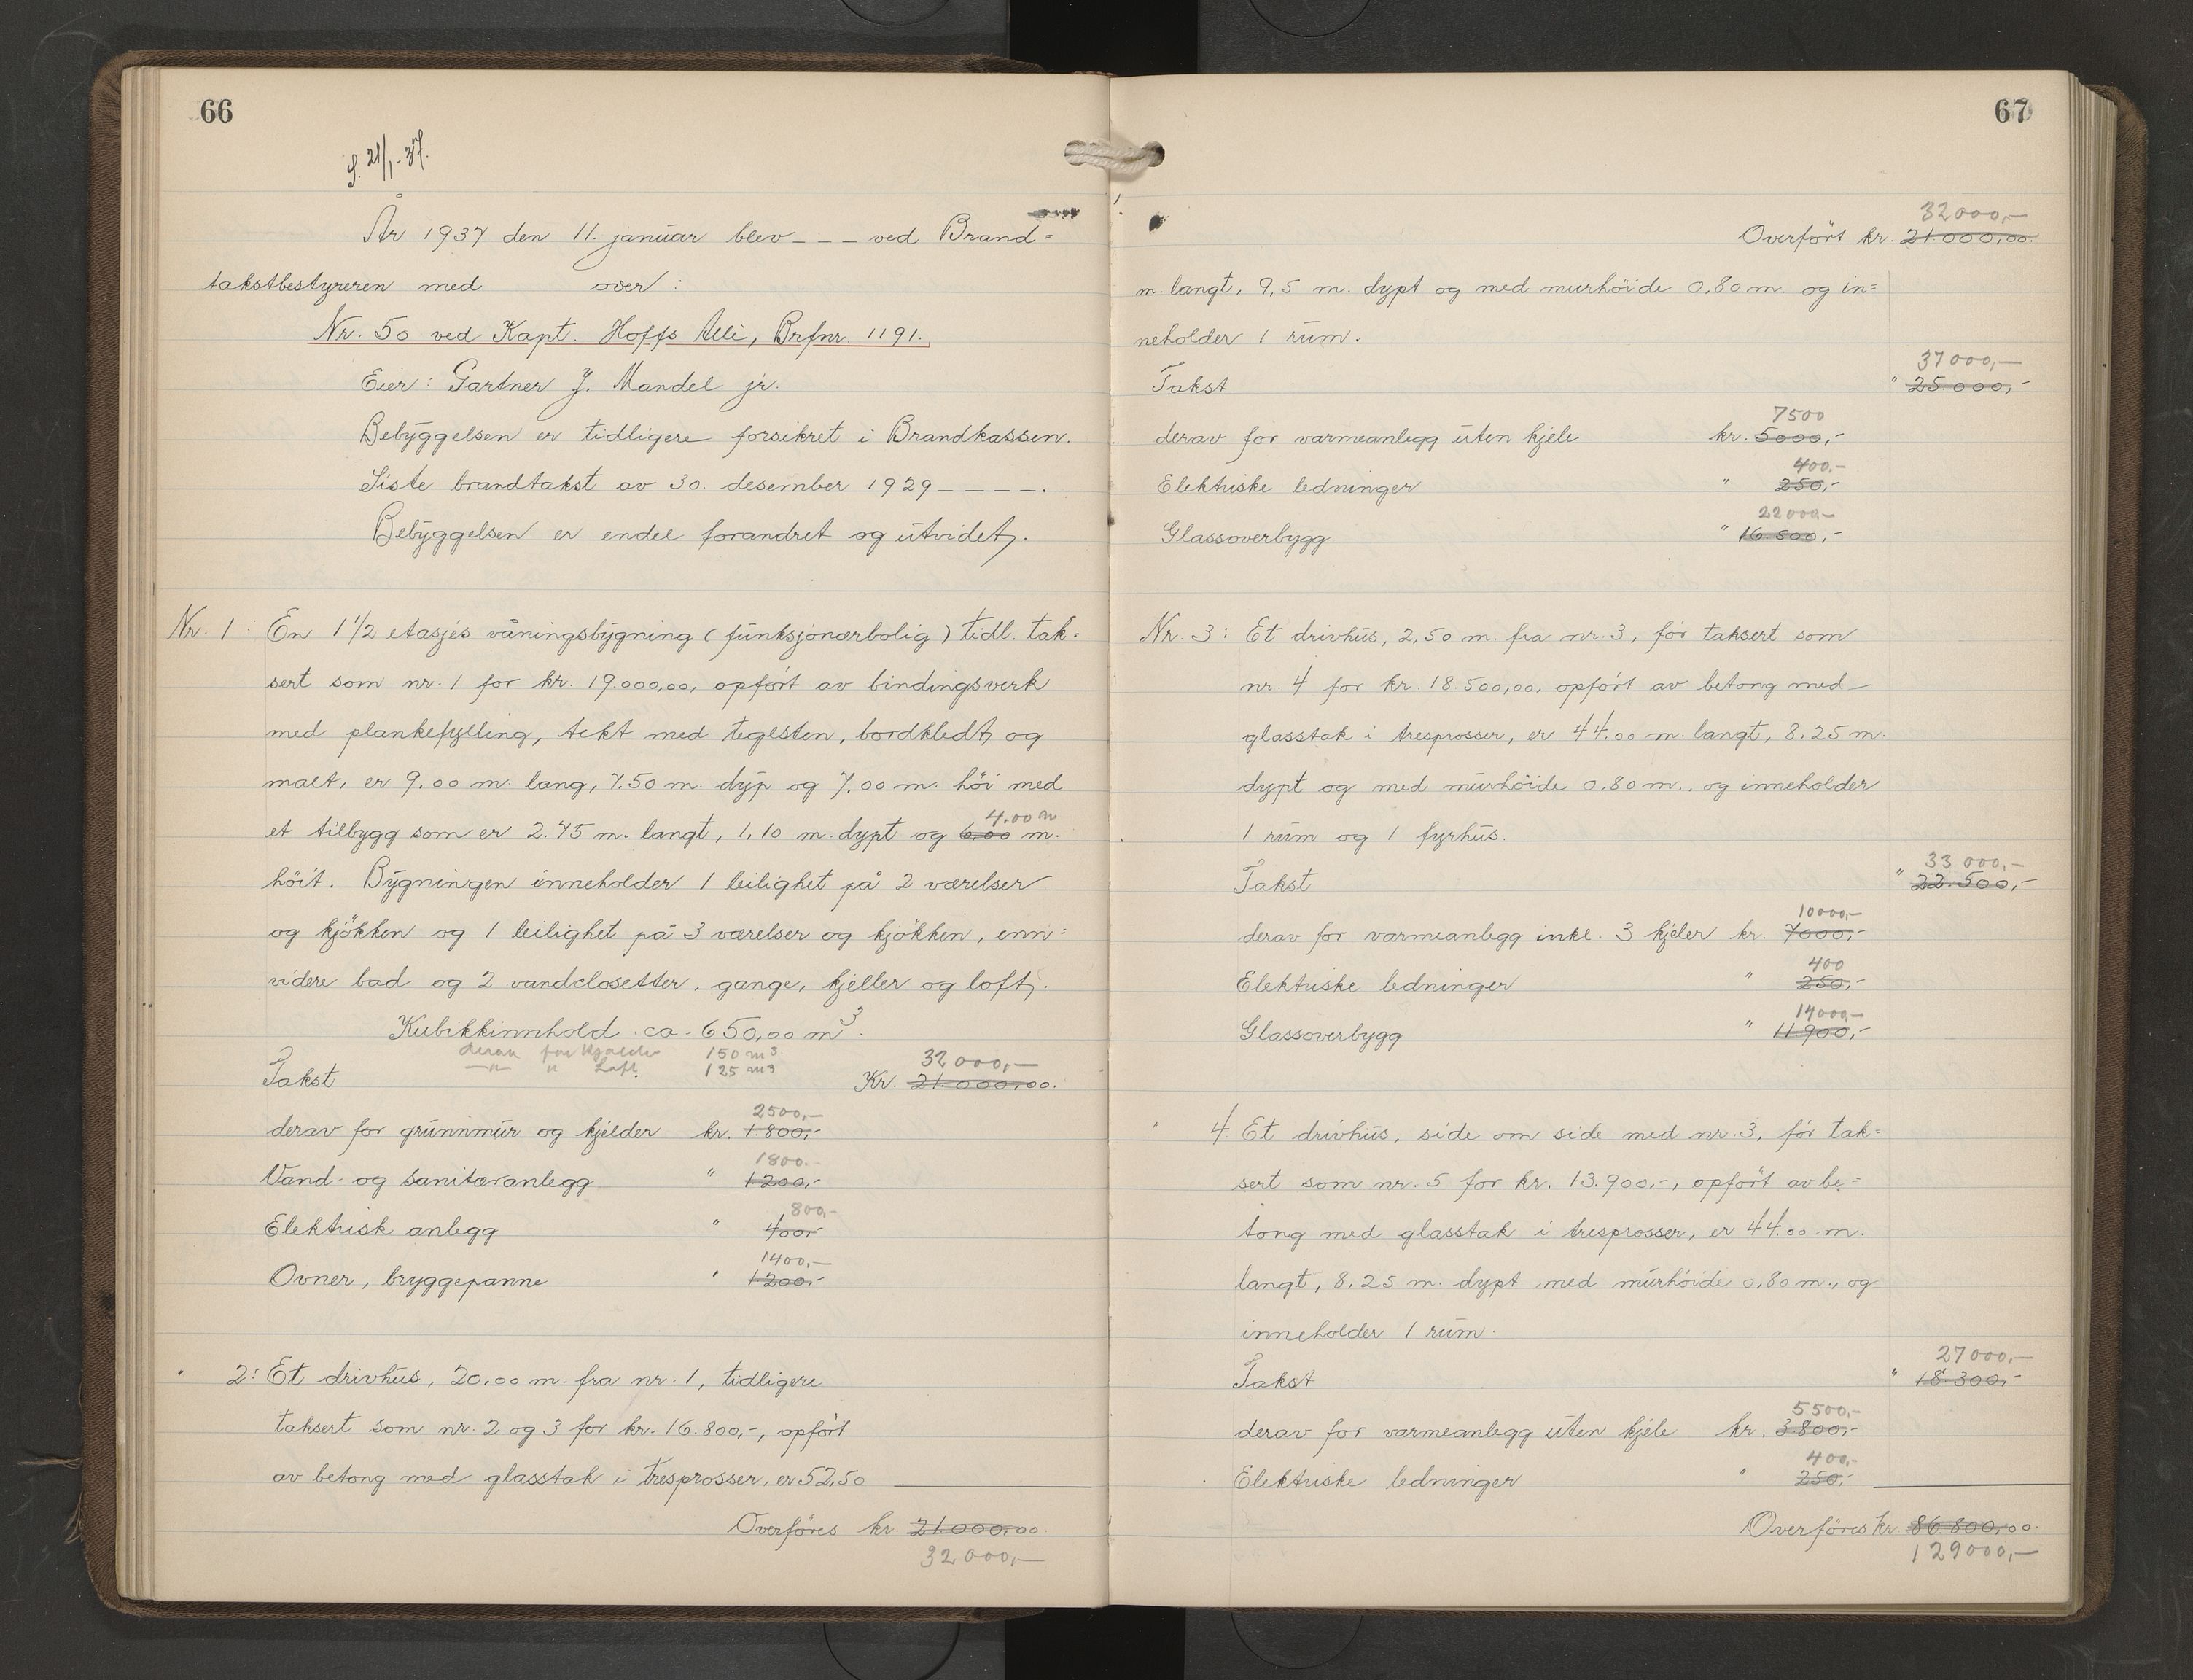 66
S. 21/1-37.
År 1937 den 11. januar blev _ _ _ ved Brand=
takstbestyreren med over:
Nr. 50 ved Kapt. Hoffs Allé, Brfnr. 1191.
Eier: Gartner J. Mandel jr.
Bebyggelsen er tidligere forsikret i Brandkassen.
Siste brandtakst av 30. desember 1929 _ _ _ _.
Bebyggelsen er endel forandret og utvidet.
Nr. 1: En 1 1/2 etasjes våningsbygning (funksjonærbolig) tidl. tak=
sert som nr. 1 for kr. 19.000,00, opført av bindingsverk
med plankefylling, tekt med teglsten, bordkledt og
malt, er 9.00 m. lang, 7.50 m. dyp og 7.00 m. høi med
4.00 m
et tilbygg som er 2.75 m. langt, 1,10 m. dypt og 6.00 m.
høit. Bygningen inneholder 1 leilighet på 2 værelser
og kjøkken og 1 leilighet på 3 værelser og kjøkken, enn=
videre bad og 2 vandclosetter, gange, kjeller og loft.
Kubikkinnhold ca. 650,00 m³.
derav for Kjælder 150 m³
—"— " Loft 125 m³ 32000,—
Takst Kr. 21.000,00.
2500,—
derav for grunnmur og kjelder kr. 1.800,-
1800.-
Vand- og sanitæranlegg " 1200,-
800,-
Elektrisk anlegg " 400,-
1400,—
Ovner, bryggepanne " 1200,-
" 2: Et drivhus, 20,00 m. fra nr. 1, tidligere
taksert som nr. 2 og 3 for kr. 16.800,-, opført
av betong med glasstak i tresprosser, er 52,50
Overføres kr. 21.000,00.
32000,—
67
32000,—
Overført kr. 21.000,00.
m. langt, 9,5 m. dypt og med murhøide 0,80 m. og in=
neholder 1 rum.
37000,—
Takst " 25.000,-
7500
derav for varmeanlegg uten kjele kr. 5000,-
400.-
Elektriske ledninger " 250,-
22000—
Glassoverbygg " 16.500,-
Nr. 3: Et drivhus, 2,50 m. fra nr. 3, før taksert som
nr. 4 for kr. 18.500,00, opført av betong med
glasstak i tresprosser, er 44.00 m. langt, 8.25 m.
dypt og med murhøide 0.80 m., og inneholder
1 rum og 1 fyrhus.
33 000,—
Takst " 22.500,-
10000,—
derav for varmeanlegg inkl. 3 kjeler kr. 7000,-
400
Elektriske ledninger " 250,-
14000,—
Glassoverbygg " 11.900,-
" 4. Et drivhus, side om side med nr. 3, før tak=
sert som nr. 5 for kr. 13.900,-, opført av be=
tong med glasstak i tresprosser, er 44.00 m.
langt, 8,25 m. dypt med murhøide 0,80 m., og
inneholder 1 rum.
27000,—
Takst " 18.300,-
5500,—
derav for varmeanlegg uten kjele kr. 3.800,-
400,-
Elektriske ledninger " 250,-
Overføres kr. 86.800,00.
129000,—